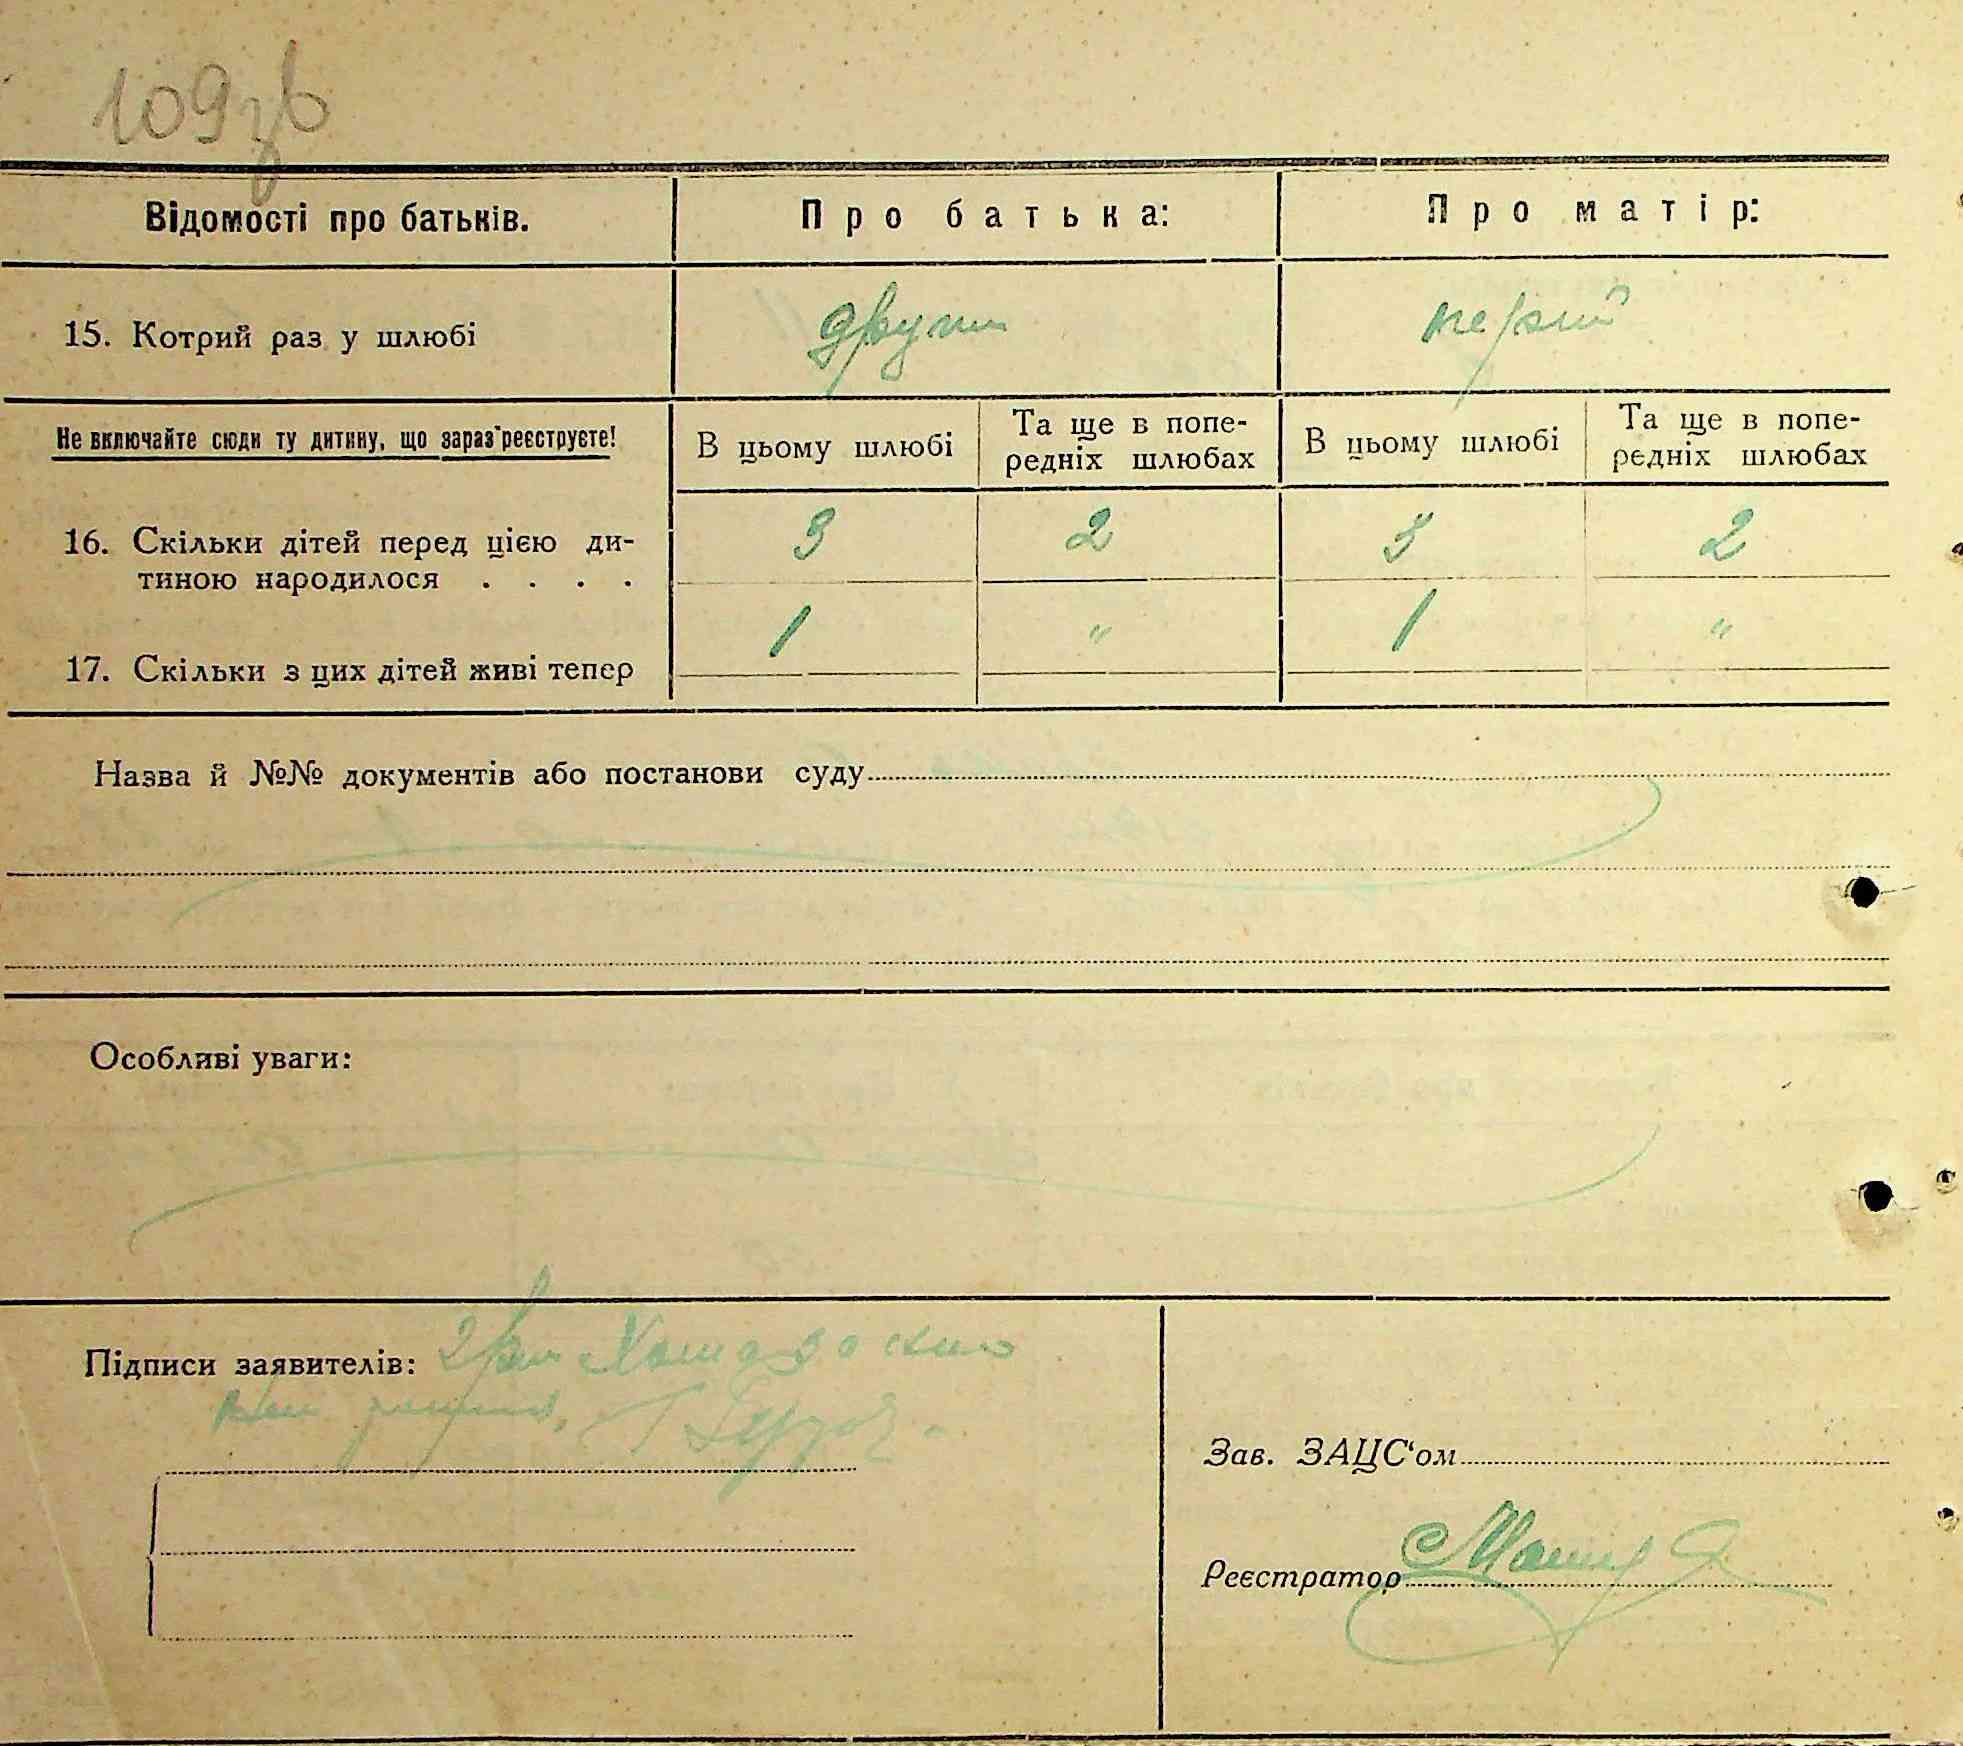 109 зв
Відомості про батьків. Про батька: Про матір:
15. Котрий раз у шлюбі другий перший
Не включайте сюди ту дитину, що зараз реєструєте! В цьому шлюбі Та ще в попе-
редніх шлюбах В цьому шлюбі Та ще в попе-
редніх шлюбах
16. Скільки дітей перед цією ди-
тиною народилося . . . . 3 2 3 2
17. Скільки з цих дітей живі тепер 1 " 1 "
Назва й №№ документів або постанови суду
Особливі уваги:
Підписи заявителів:
Зав. ЗАЦС'ом
Реєстратор